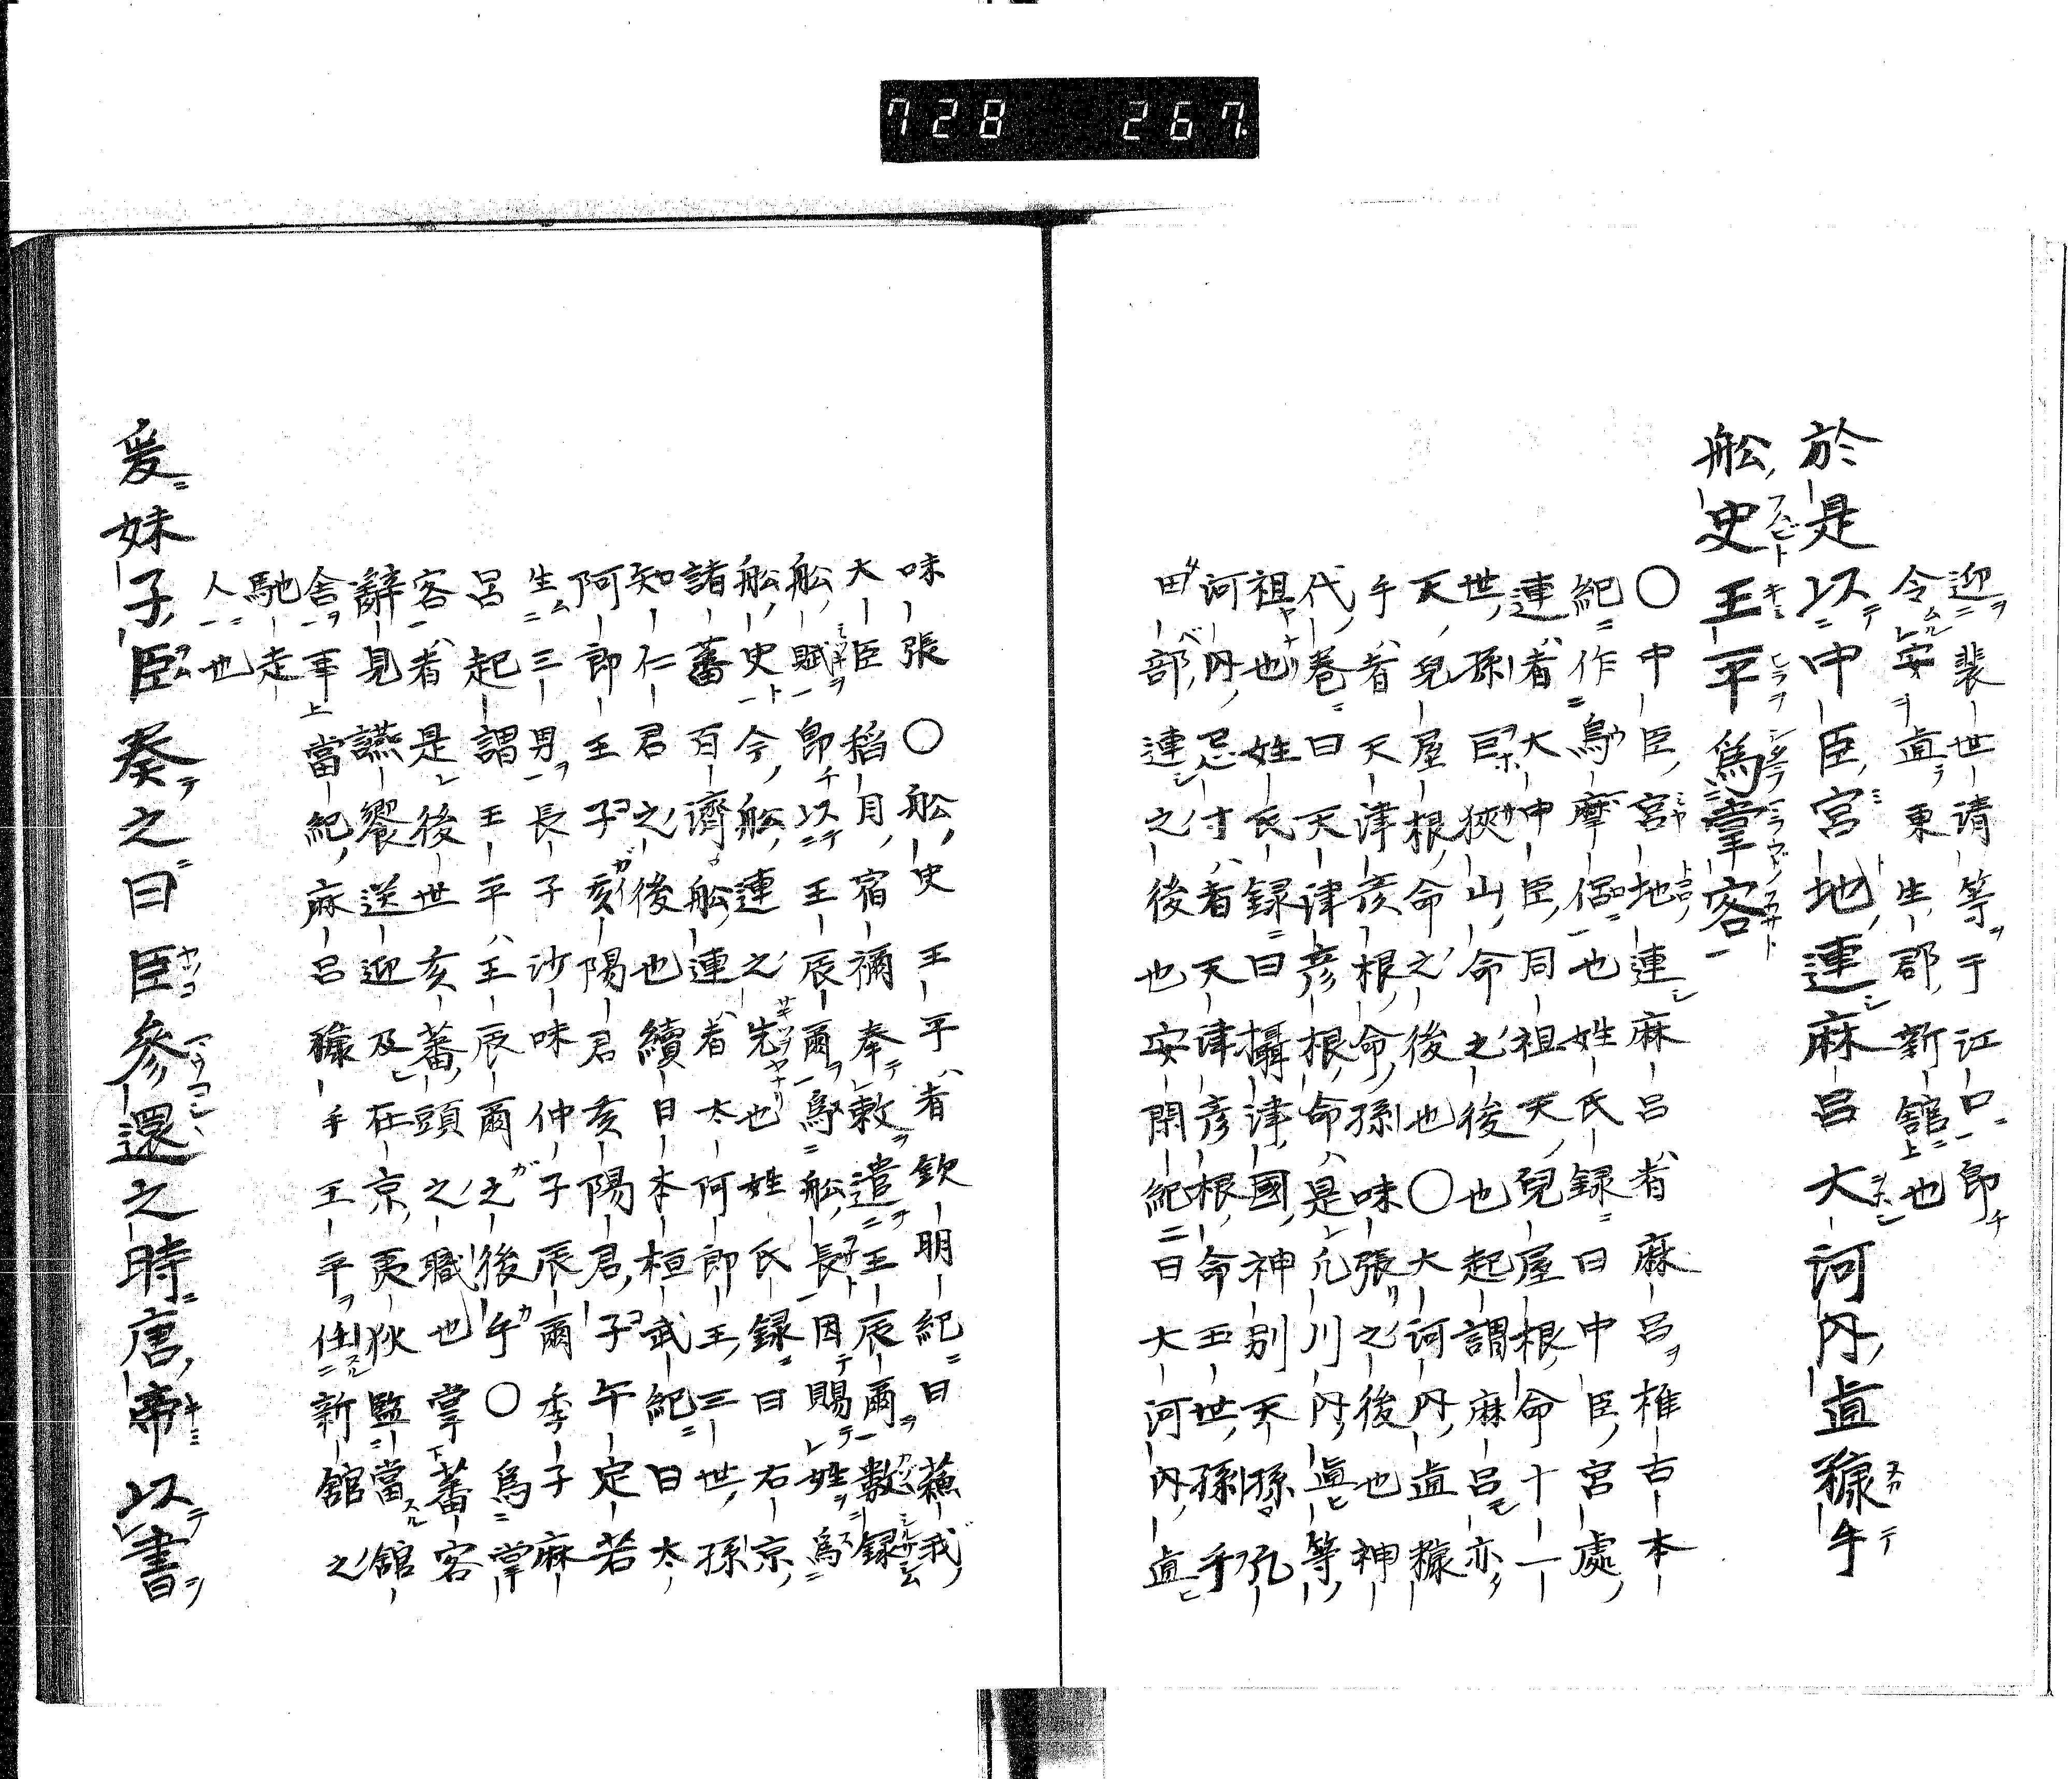 728 267
迎裴世請等于江口即
令安直東生郡新舘也
於是以中臣宮地連麻呂大河内直糠手
舩史王平爲掌客
〇中臣宮地連麻呂者麻呂推古本
紀作烏摩侶也姓氏録曰中臣宮處
連者大中臣同祖天兒屋根命十一
世孫巨狹山命之後也起謂麻呂亦
天兒屋根命之後也〇大河内直糠
手者天津彦根命孫味張之後也神
代巻曰天津彦根命是凡川内直等
祖也姓氏録曰攝津國神別天孫凡
河内忌寸者天津彦根命五世孫手
田部連之後也安閑紀二曰大河内直
味張〇舩史王平者欽明紀曰蘓我
大臣稻目宿禰奉敕遣王辰爾數録
舩賦即以王辰爾爲舩長因賜姓爲
舩史今舩連之先也姓氏録曰右京
諸蕃百濟舩連者太阿郎王三世孫
知仁君之後也續日本桓武紀曰太
阿郎王子亥陽君亥陽君子午定若
生三男長子沙味仲子辰爾季子麻
呂起謂王平王辰爾之後乎〇爲掌
客者是後世亥蕃頭之職也掌蕃客
辭見讌饗送迎及在京夷狄監當舘
舎事當紀麻呂糠手王平任新舘之
馳走
人也
爰妹子臣奏之曰臣參還之時唐帝以書